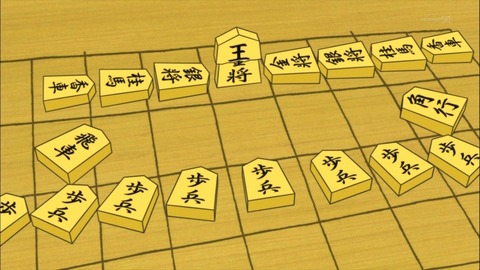 香車
桂馬
銀将
王将
金将
銀将
桂馬
香車
飛車
角行
歩
歩兵
歩兵
歩兵
歩兵
歩兵
歩兵
歩兵